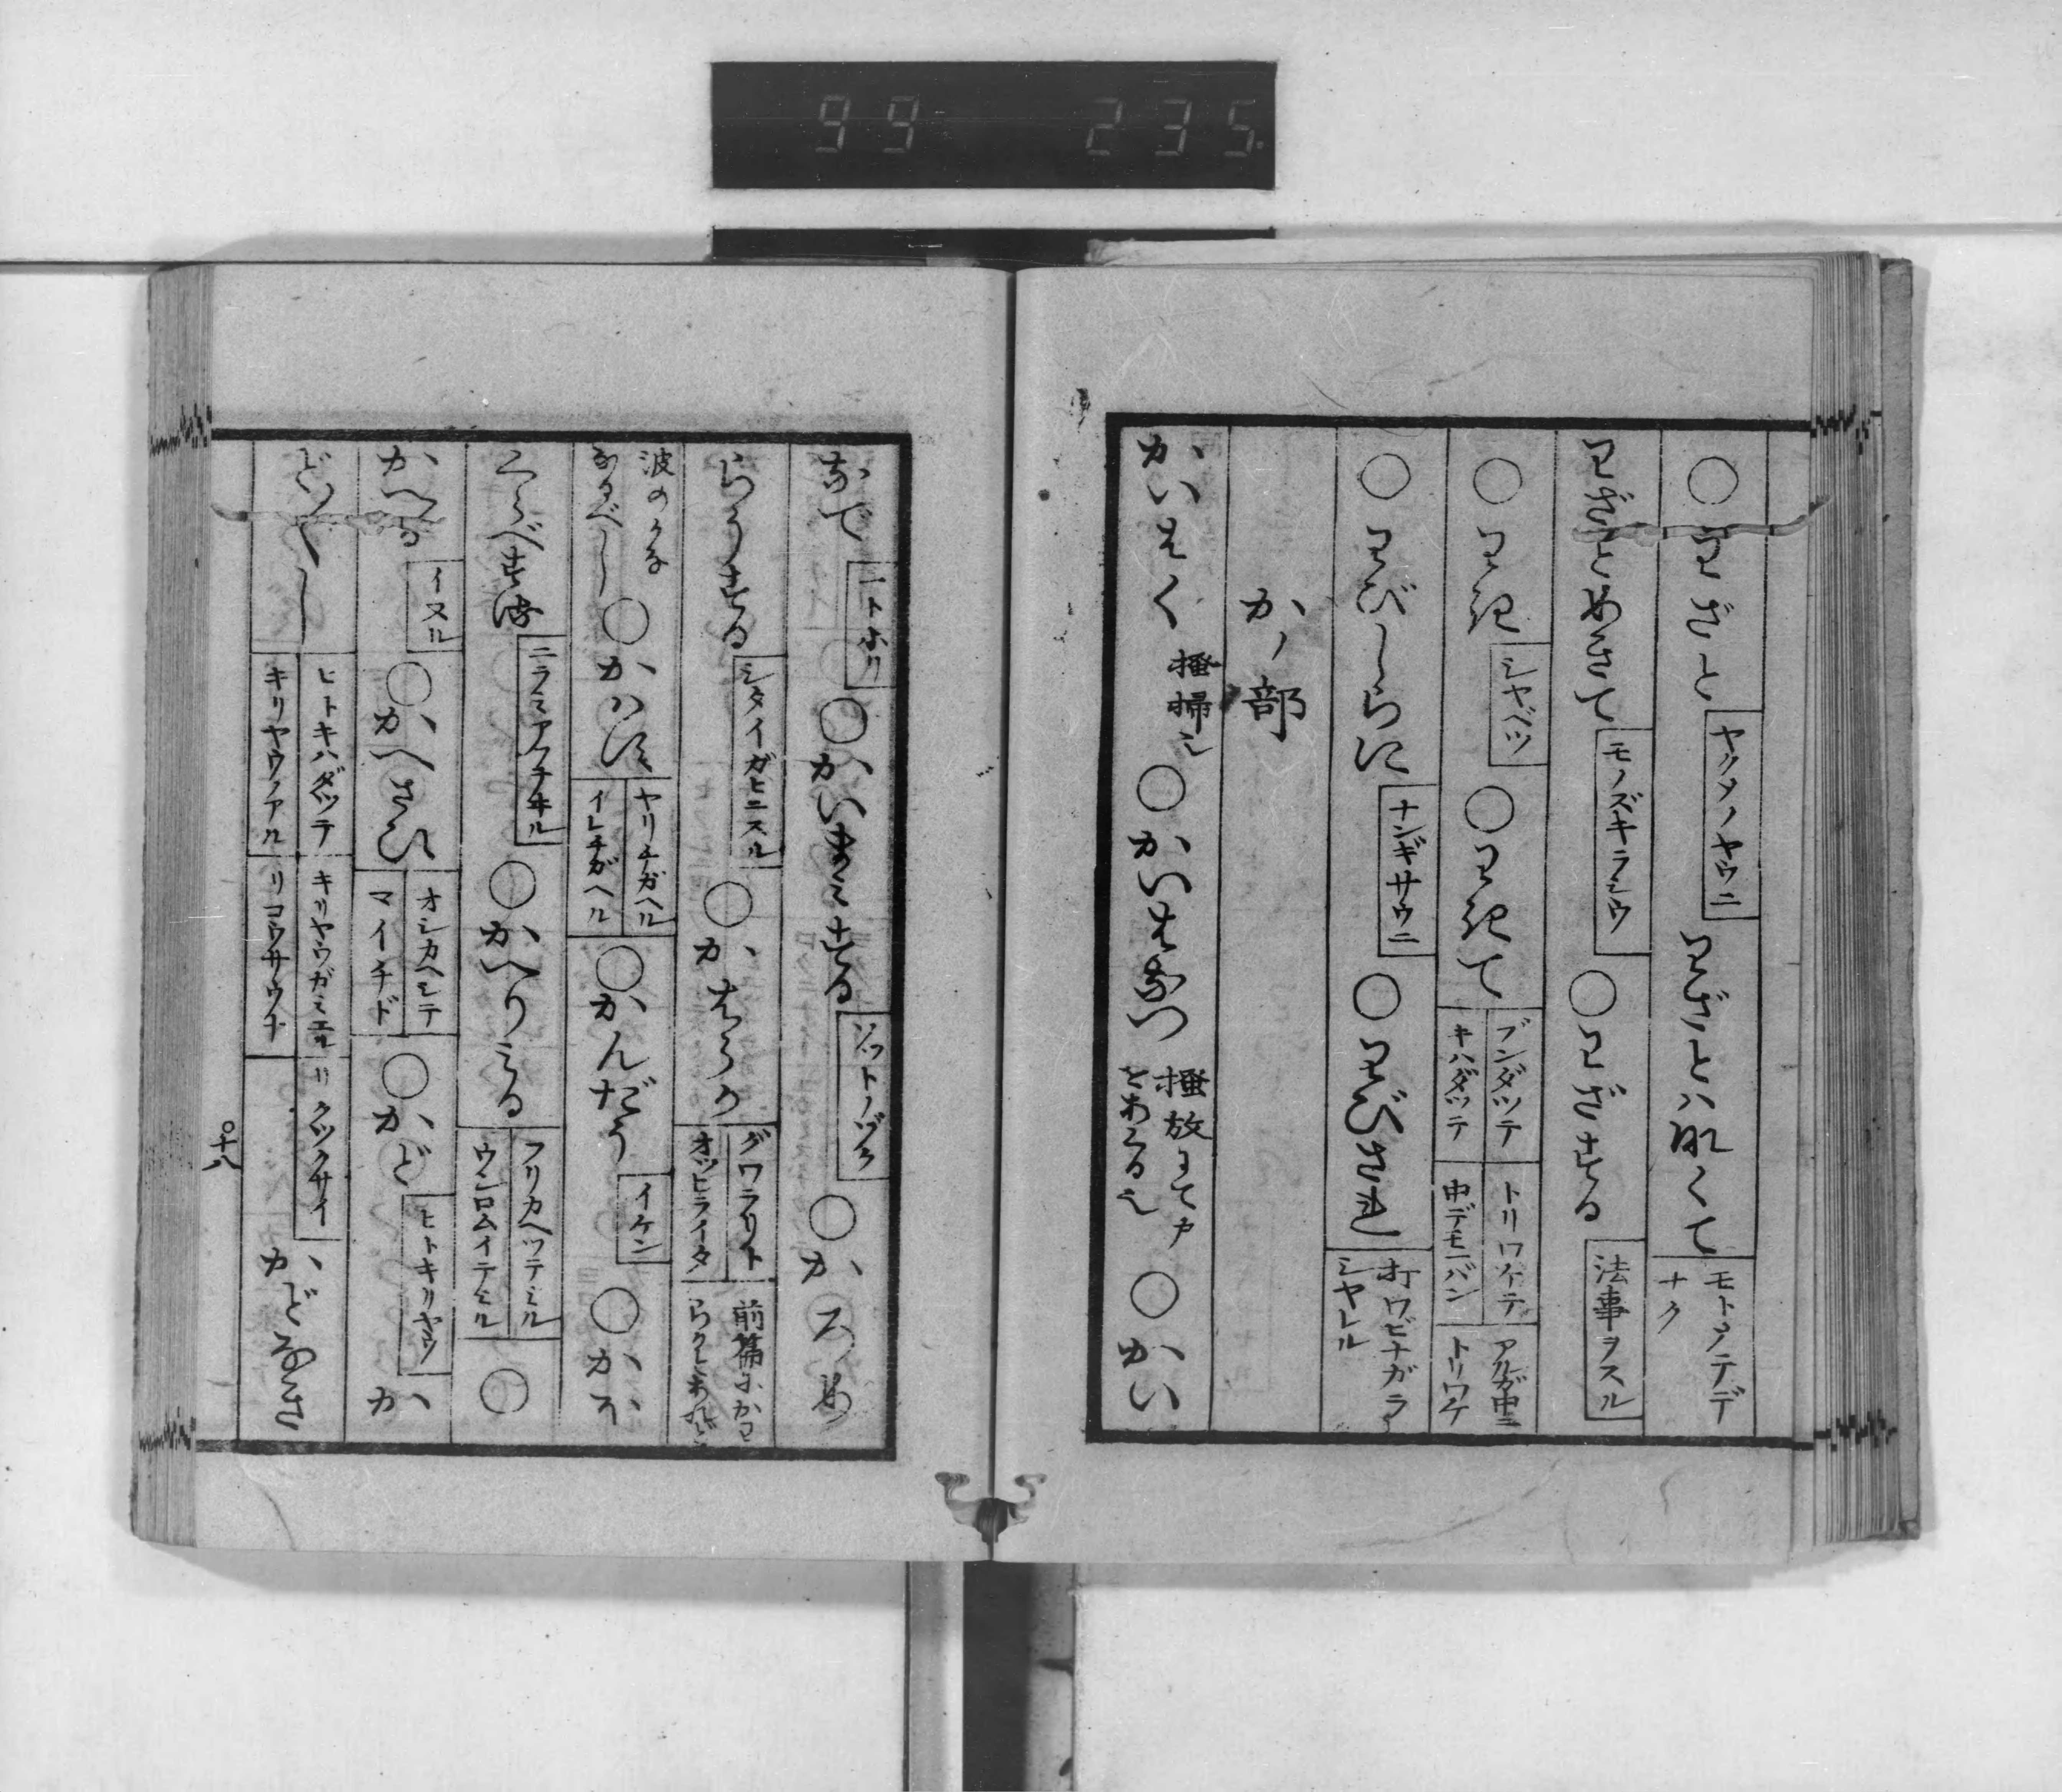 99 235
○わざと ヤクソクノヤウニ わざとハ無くて モトクテデナク
わざとめきて モノズキラシウ ○わざする 法事ヲスル
○わき シヤベツ ○わきて ブンダツテ キハダツテ トリワイテ 中デモ一バン アルガ中ニ トリワケ
○わびしらに ナンギサウニ ○わびされ 打ワビナガラ シヤレル
か ノ 部
かいはく 掻掃也 ○かいはなつ 掻放にて戸をあくる也 ○かい
なで 一トホリ ○かいまみする ソツトノゾク ○かろめ
らうする シタイガヒニスル ○かはらか グワラリト オツヒライタ 前篇にかわらかとあれど
波のかな なるべし ○かハす ヤリチガヘル イレチガヘル ○かんだう イケン ○かほ
くらべする ニラミアクチヰル ○かへりみる フリカヘツテミル ウシロムイテミル ○
かへる イヌル ○かへさひ オシカヘシテ マイチド ○かど ヒトキリヤウ か
どかどし ヒトキハダツテ キリヤウノアル キリヤウガミエル リコウサウナ リクツクサイ かどなき
十八